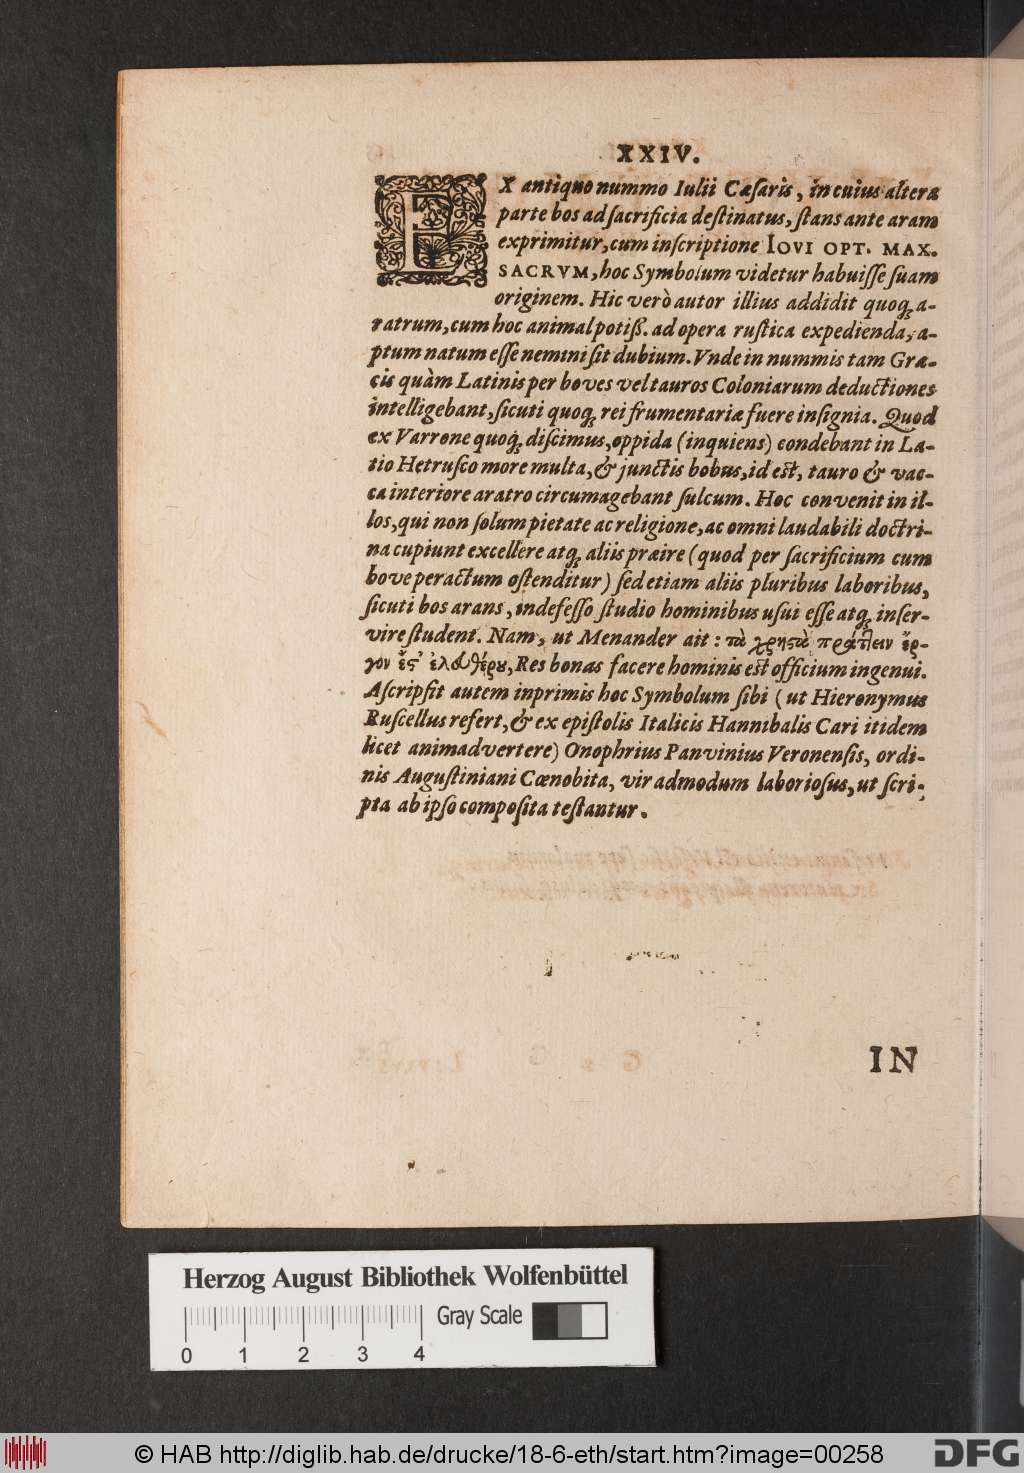 XXIV.
EX antiquo nummo Iulii Cæſaris, in cuius altera
parte bos ad ſacrificia deſtinatus, ſtans ante aram
exprimitur, cum inſcriptione IOVI OPT. MAX.
SACRVM, hoc Symbolum videtur habuiſſe ſuam
originem. Hic verò autor illius addidit quoqꝫ a-
ratrum, cum hoc animal potiß. ad opera ruſtica expedienda, a-
ptum natum eſſe nemini ſit dubium. Vnde in nummis tam Græ-
cis quàm Latinis per boves vel tauros Coloniarum deductiones
intelligebant, ſicuti quoqꝫ rei frumentariæ fuere inſignia. Quod
ex Varrone quoqꝫ diſcimus, oppida (inquiens) condebant in La-
tio Hetruſco more multa, & junctis bobus, id est, tauro & vac-
ca interiore aratro circumagebant ſulcum. Hoc convenit in il-
los, qui non ſolum pietate ac religione, ac omni laudabili doctri-
na cupiunt excellere atqꝫ aliis præire (quod per ſacrificium cum
bove peractum oſtenditur) ſed etiam aliis pluribus laboribus,
ſicuti bos arans, indefeſſo ſtudio hominibus uſui eſſe atqꝫ inſer-
vire ſtudent. Nam, ut Menander ait: τὰ χρηϛὰ πράτ]ειν ἔρ-
γον ἔϛ' ἐλευθέρου, Res bonas facere hominis est officium ingenui.
Aſcripſit autem inprimis hoc Symbolum ſibi (ut Hieronymus
Ruſcellus refert, & ex epiſtolis Italicis Hannibalis Cari itidem
licet animadvertere) Onophrius Panvinius Veronenſis, ordi-
nis Auguſtiniani Cœnobita, vir admodum laborioſus, ut ſcri-
pta ab ipſo compoſita teſtantur.
IN
Herzog August Bibliothek Wolfenbüttel
Gray Scale
0 1 2 3 4
© HAB http://diglib.hab.de/drucke/18-6-eth/start.htm?image=00258
DFG